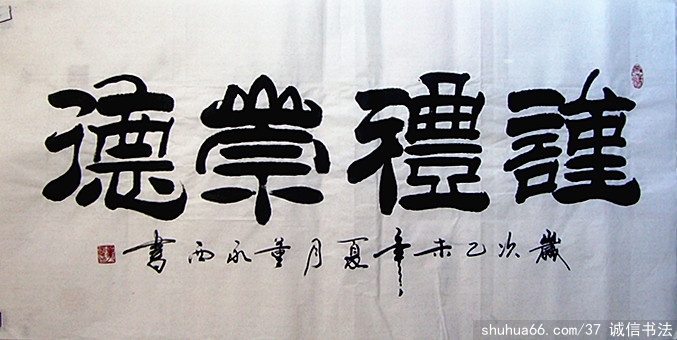 謹禮崇德
歲次乙未年夏月董永西書
shuhua66.com/37 诚信书法